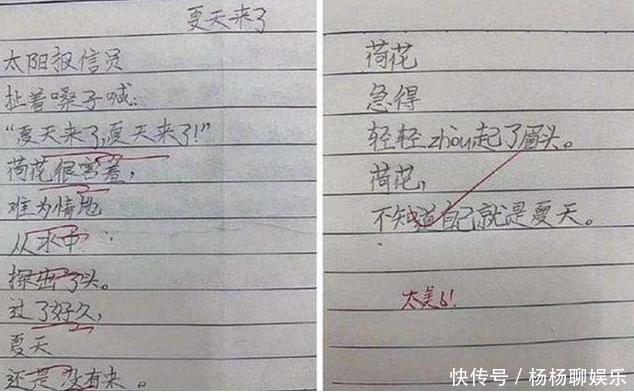 夏天来了
太阳报信员
扯着嗓子喊:
“夏天来了,夏天来了!”
荷花很害羞,
难为情地
从水中
探出了头。
过了好久,
夏天
还是没有来。
荷花
急得
轻轻zhou起了眉头。
荷花,
不知道自己就是夏天。
太美了!
快传号/杨杨聊娱乐